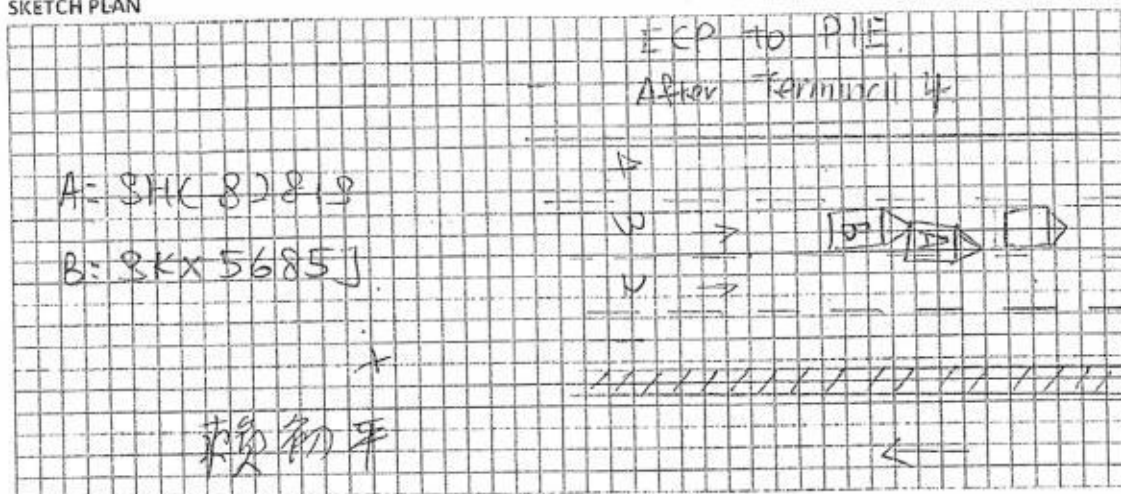 SKETCH PLAN
ECP to PIE.
After Terminal 4
A= SHC 8281S
B: SKX 5685J
4
3
2
1
B
赖初平